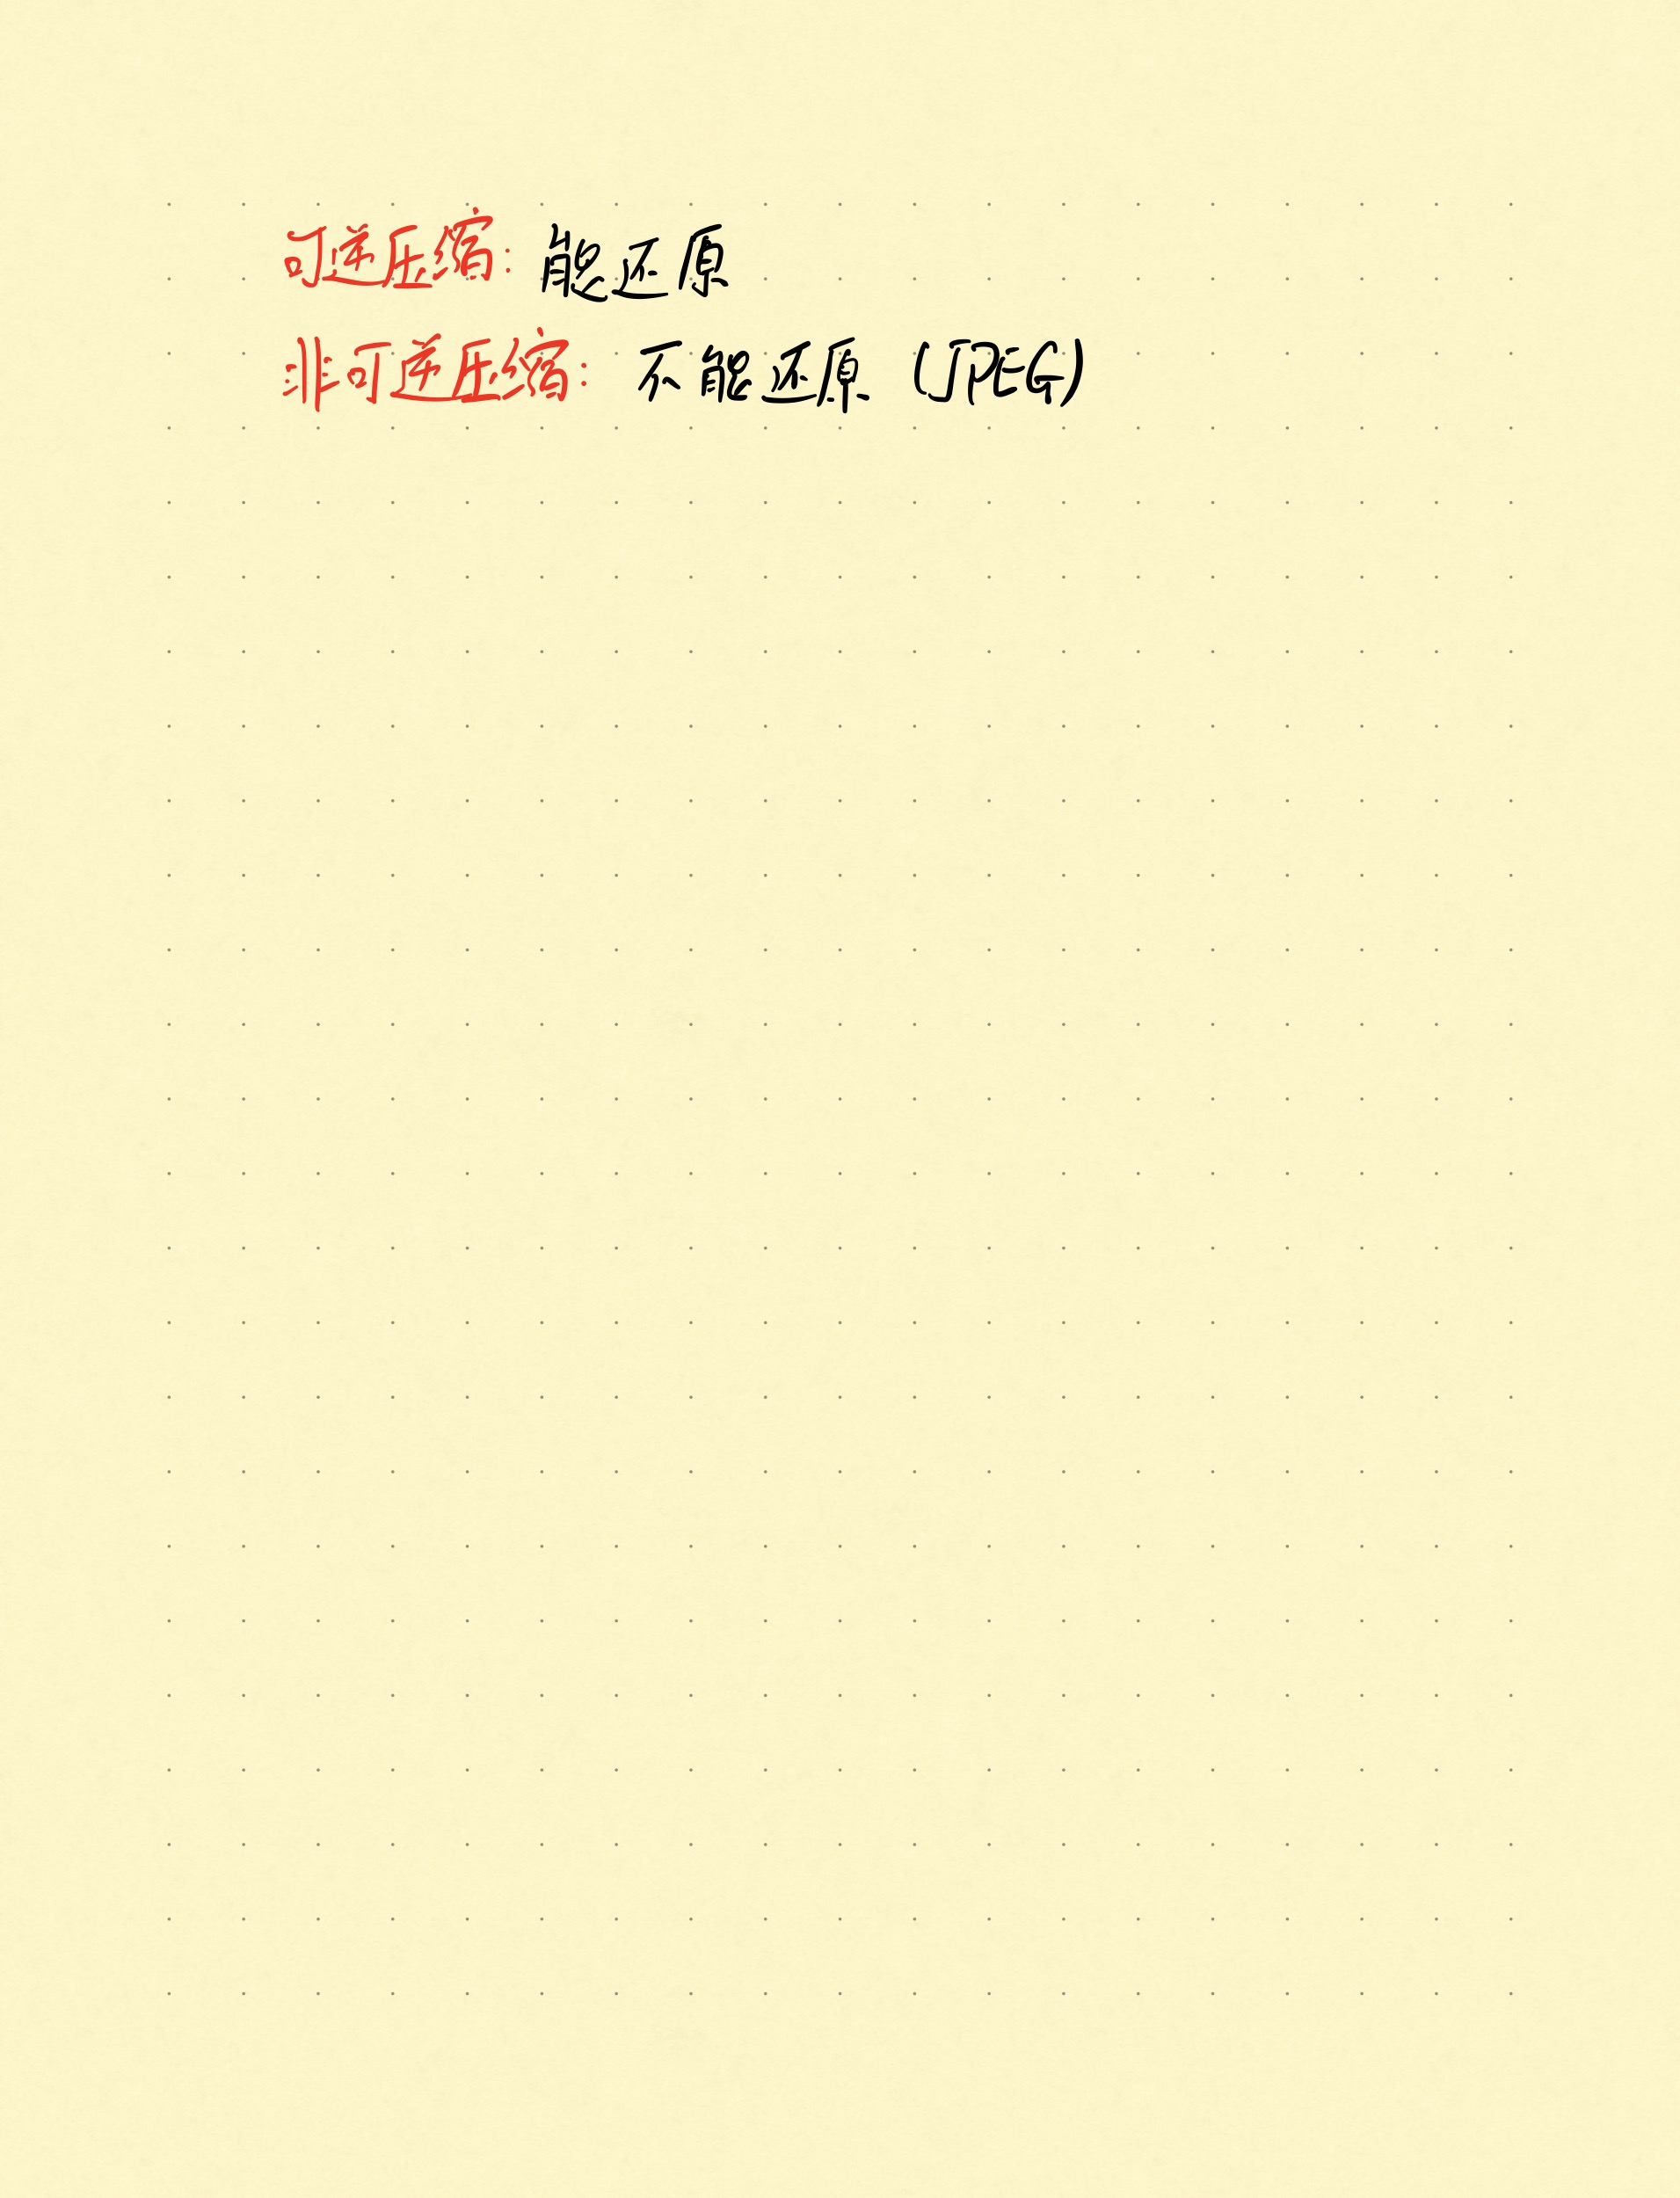 可逆压缩: 能还原
非可逆压缩: 不能还原 (JPEG)